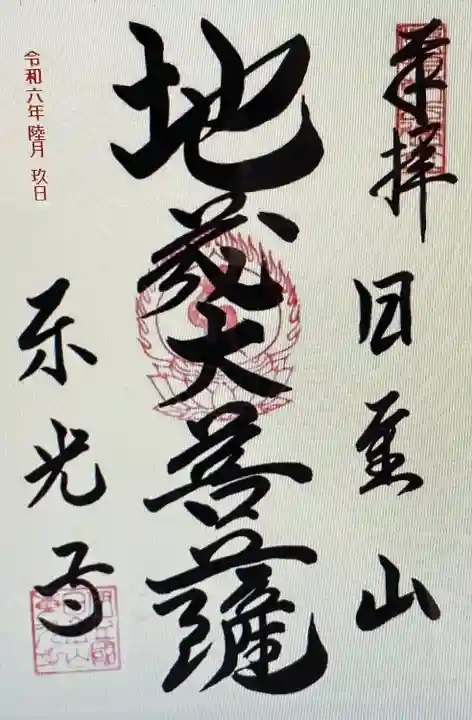 奉拝 日金山
地蔵大菩薩
東光寺
令和六年 陸月 玖日